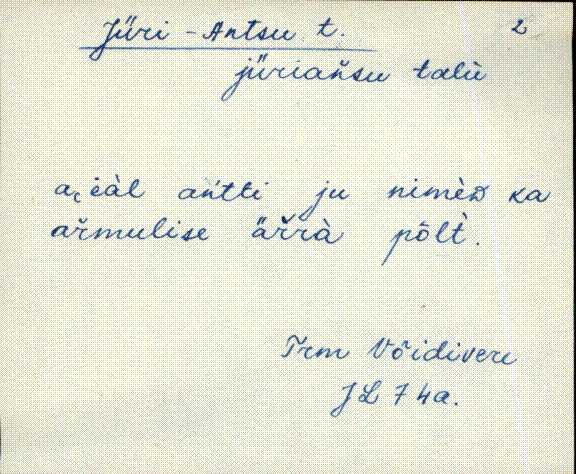 Jüri-Antsu t. 2
jüriańsu talù
aꞈeàl ańtti ju nimèᴅ ka
ař̌mulise äřrà põlt̀.
Trm Võidivere
JL 74a.